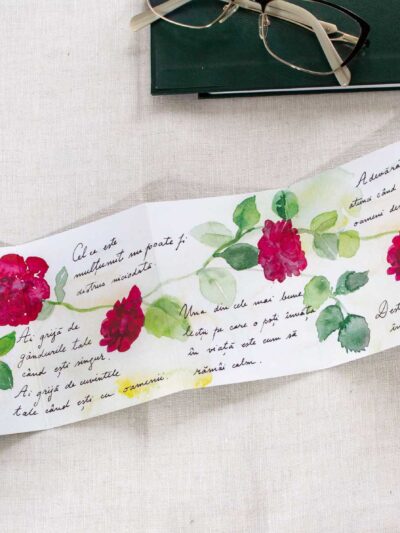 Cel ce este
mulțumit nu poate fi
distrus niciodată
Ai grijă de
gândurile tale
când ești singur.
Ai grijă de cuvintele
tale când ești cu oamenii.
Una din cele mai bune
lecții pe care o poți învăța
în viață este cum să
rămâi calm.
Adevăra
atunci când
oameni des
Dest
în